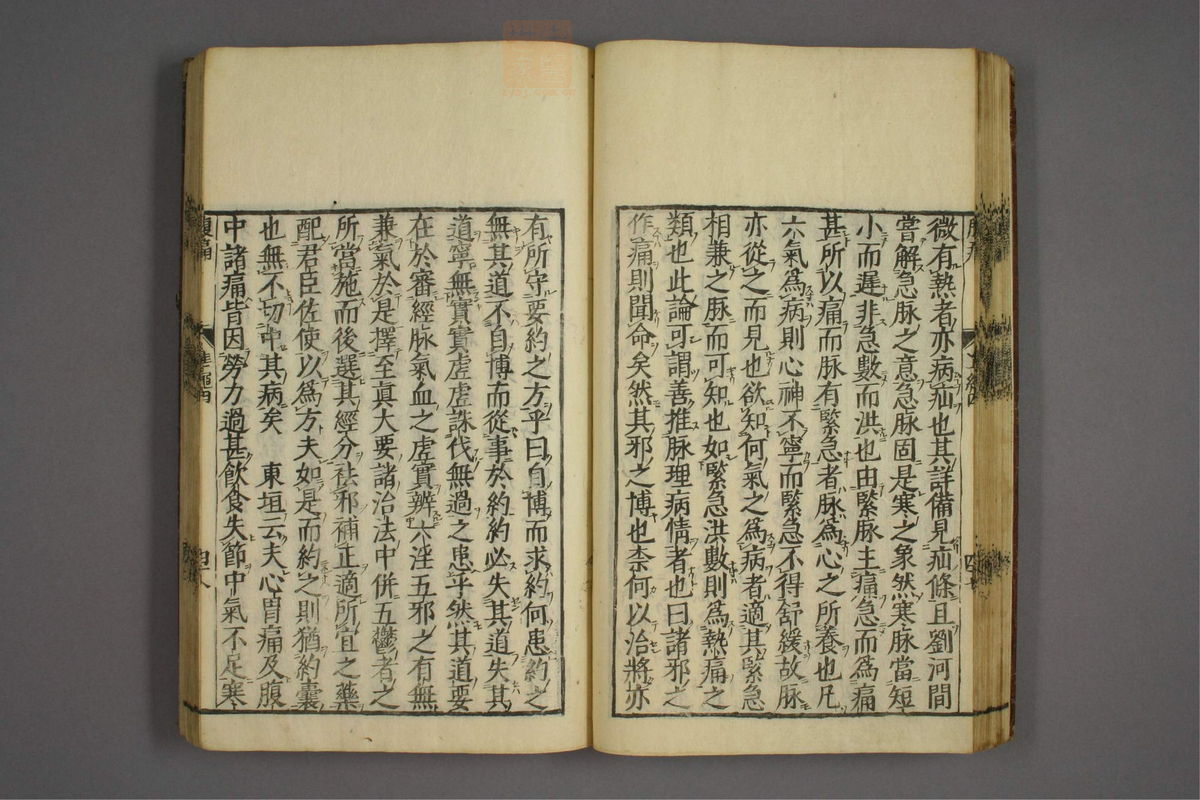 微有熱者亦病疝也其詳備見疝條且劉河間
嘗解急脉之意急脉固是寒之象然寒脉當短
小而遲非急數而洪也由緊脉主痛急而爲痛
甚所以痛而脉有緊急者脉爲心之所養也凡
六氣爲病則心神不寧而緊急不得舒緩故脉
亦從之而見也欲知何氣之爲病者適其緊急
相兼之脉而可知也如緊急洪數則爲熱痛之
類也此論可謂善推脉理病情者也曰諸邪之
作痛則聞命矣然其邪之博也柰何以治將亦
有所守要約之方乎曰自博而求約何患約之
無其道不自博而從事於約約必失其道失其
道寧無實實虛虛誅伐無過之患乎然其道要
在於審經脉氣血之虛實辨六淫五邪之有無
兼氣於是擇至真大要諸治法中併五鬱者之
所當施而後選其經分祛邪補正適所宜之藥
配君臣佐使以爲方夫如是而約之則猶約囊
也無不切中其病矣　東垣云夫心胃痛及腹
中諸痛皆因勞力過甚飲食失節中氣不足寒
腹痛
四十八